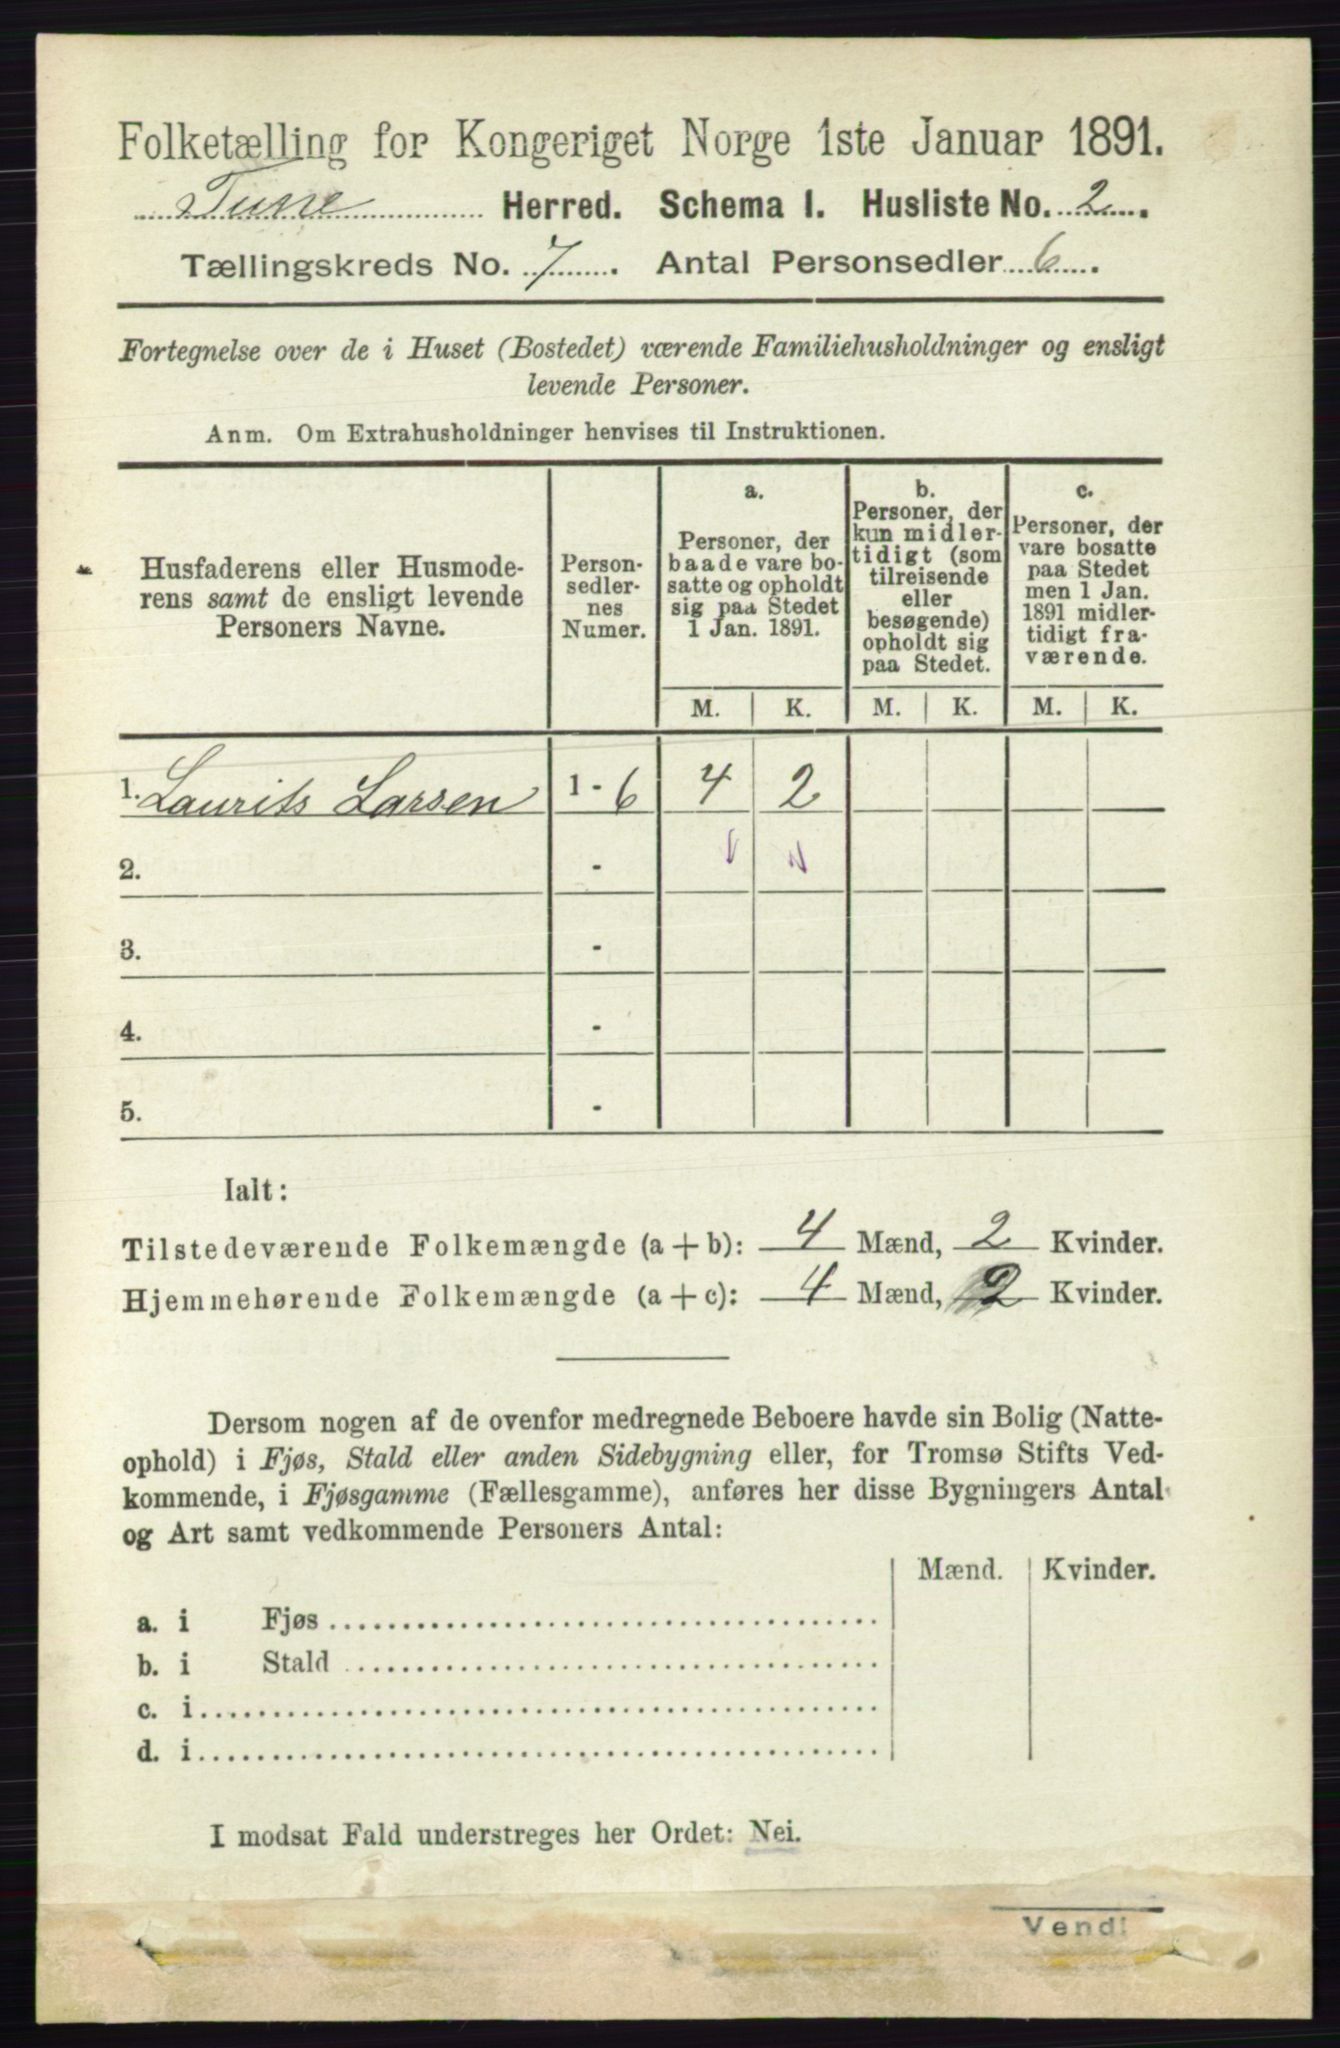 Folketælling for Kongeriget Norge 1ste Januar 1891.
Tune Herred. Schema 1. Husliste No. 2.
Tællingskreds No. 7. Antal Personsedler 6.
Fortegnelse over de i Huset (Bostedet) værende Familiehusholdninger og ensligt
levende Personer.
Anm. Om Extrahusholdninger henvises til Instruktionen.
Husfaderens eller Husmode-
rens samt de ensligt levende
Personers Navne.
Person-
sedler-
nes
Numer.
a.
Personer, der
baade vare bo-
satte og opholdt
sig paa Stedet
1 Jan. 1891.
b.
Personer, der
kun midler-
tidigt (som
tilreisende
eller
besøgende)
opholdt sig
paa Stedet.
c.
Personer, der
vare bosatte
paa Stedet
men 1 Jan.
1891 midler-
tidigt fra-
værende.
M. K. M. K. M. K.
1. Laurits Larsen 1 - 6 4 2
2. -
3. -
4. -
5. -
Ialt:
Tilstedeværende Folkemængde (a + b): 4 Mænd, 2 Kvinder.
Hjemmehørende Folkemængde (a + c): 4 Mænd, 2 Kvinder.
Dersom nogen af de ovenfor medregnede Beboere havde sin Bolig (Natte-
ophold) i Fjøs, Stald eller anden Sidebygning eller, for Tromsø Stifts Ved-
kommende, i Fjøsgamme (Fællesgamme), anføres her disse Bygningers Antal
og Art samt vedkommende Personers Antal:
Mænd. Kvinder.
a. i Fjøs
b. i Stald
c. i
d. i
I modsat Fald understreges her Ordet: Nei.
Vend!